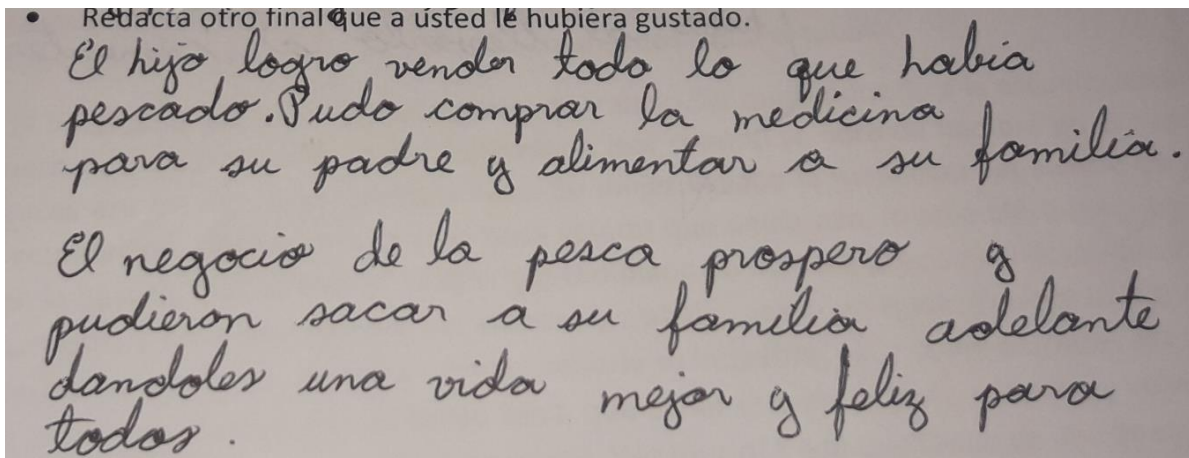 • Redacta otro final que a usted le hubiera gustado.
El hijo logro vender todo lo que habia
pescado. Pudo comprar la medicina
para su padre y alimentar a su familia.
El negocio de la pesca prospero y
pudieron sacar a su familia adelante
dandoles una vida mejor y feliz para
todos.